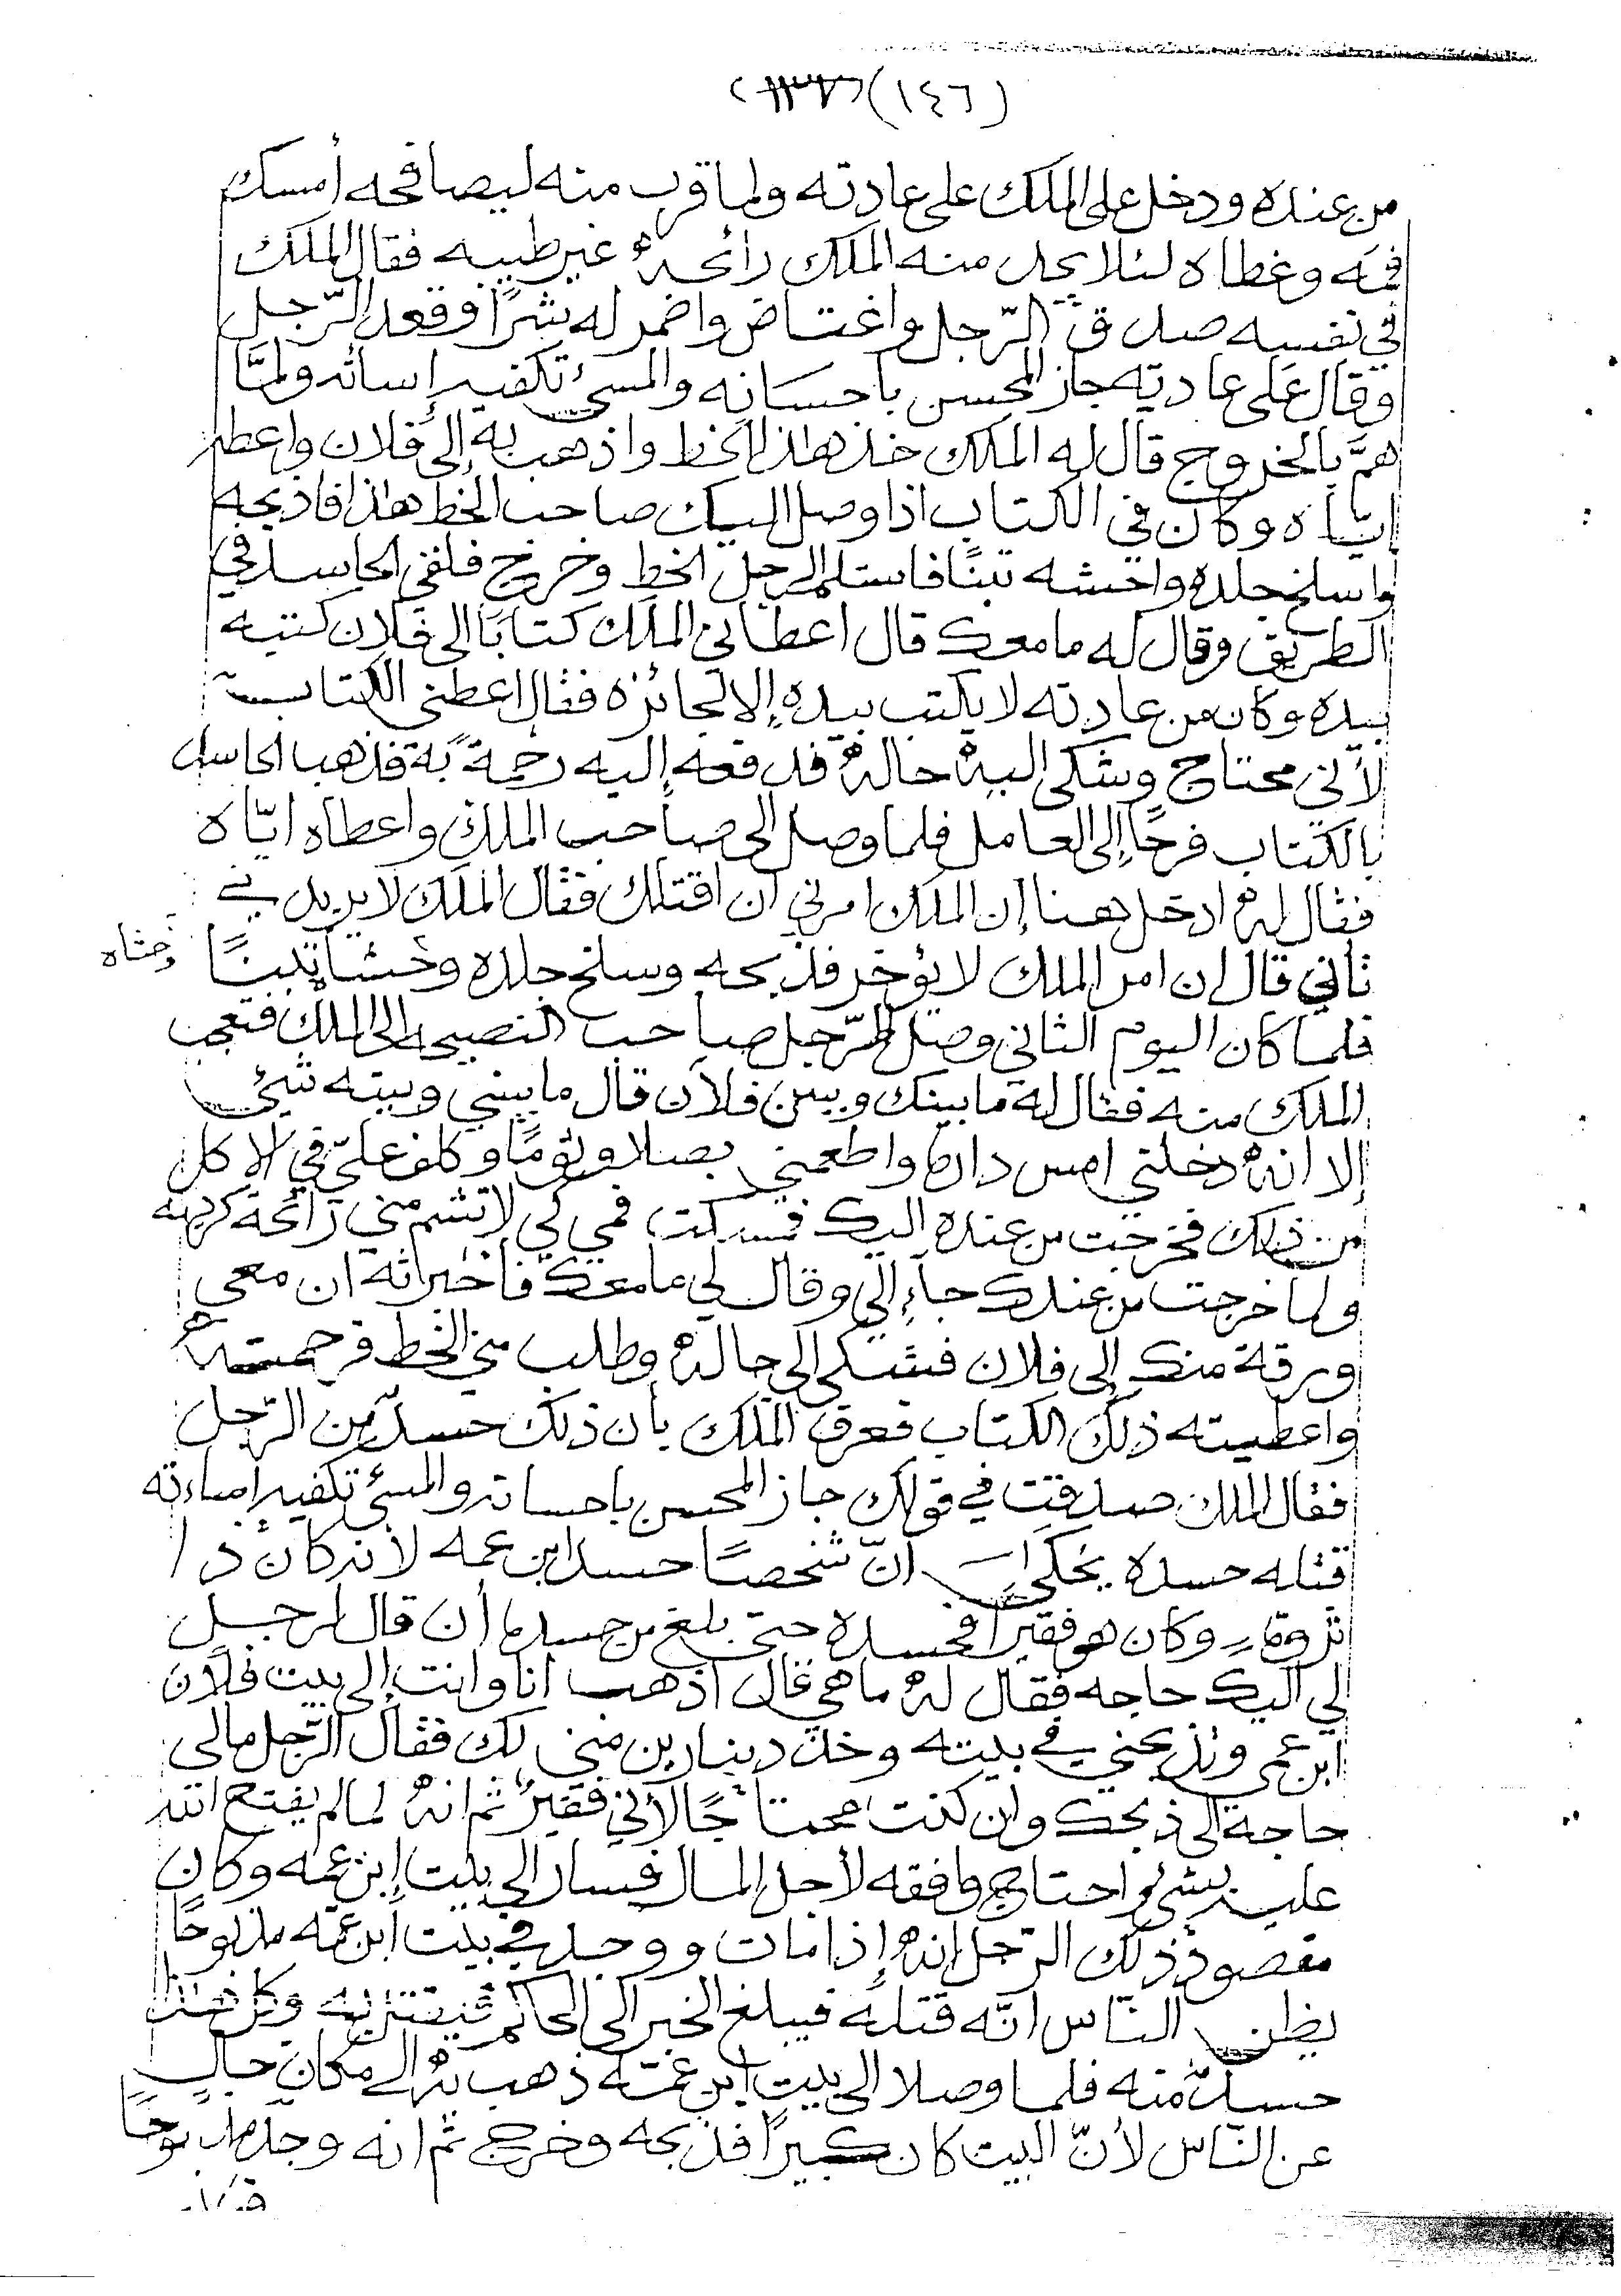 (١٤٦) (١٣٧)
من عنده ودخل على الملك على عادته ولما قرب منه ليصافحه أمسك
فيه وغطاه لئلا يجد منه الملك رائحة غير طيبه فقال الملك
في نفسه صدق الرّجل واغتاض واضمر له شرًا وقعد الرّجل
وقال عَلى عادته جاز المحسن باحسَانه والمسئ تكفيه إسائه ولمَّا
همَّ بالخروج قال له الملك خذ هاذا الخط واذهب به إلى فلان واعطه
ايّاه وكان في الكتاب اذا وصل اليك صاحب الخط هاذا فاذبحه
واسلخ جلده واحشه تبنًا فاستلم الرجل الخط وخرج فلقي الحاسد في
الطريق وقال له ما معك قال اعطاني الملك كتابًا الى فلان كتبه
بيده وكان من عادته لا يكتب بيده إلا لجائزه فقال اعطني الكتاب
لأني محتاج وشكى اليه حاله فدفعه إليه رحمة به فذهب الحاسد
بالكتاب فرحًا إلى العامل فلما وصل الى صاحب الملك واعطاه ايّاه
فقال له ادخل هنا إن الملك امرني ان اقتلك فقال الملك لا يريدني
ثاني قال ان امر الملك لا يؤخر فذبحه وسلخ جلده وحشأ تبنًا
وحشاه
فلما كان اليوم الثاني وصل الرّجل صاحب النصيحه الى الملك فتعجب
الملك منه فقال له ما بينك وبين فلان قال ما بيني وبينه شيئ
إلا انه دخلني امس داره واطعمني بصلا وثومًا وكلف عليّ في الاكل
من ذلك فخرجت من عنده اليك فسكت فمي كي لا تشم مني رائحة كريهه
ولما خرجت من عندك جاء إلي وقال لي ما معك فأخبرته ان معي
ورقة منك إلى فلان فشكى الي حاله وطلب مني الخط فرحمته
واعطيته ذلك الكتاب فعرف الملك بان ذلك حسدًا من الرّجل
فقال الملك صدقت في قولك جاز المحسن باحسانه والمسئ تكفيه إساءته
قتله حسده يحكى انّ شخصًا حسد ابن عمه لانه كان ذا
ثروة وكان هو فقيرًا فحسده حتى بلغ من حسده أن قال لرجل
لي اليك حاجه فقال له ما هي قال اذهب انا وانت إلى بيت فلان
ابن عمي وتذبحني في بيته وخذ دينارين مني لك فقال الرّجل مالي
حاجة الى ذبحك وان كنت محتاجًا لأني فقير ثم انه لما لم يفتح الله
عليه بشئ واحتاج وافقه لأجل المال فسار الى بيت إبن عمه وكان
مقصود ذلك الرّجل انه إذا مات ووجد في بيت ابن عمّه مذبوحًا
يظن النّاس انّه قتله فيبلغ الخبر الى الحاكم فيقتل به وكل هذا
حسدًا منه فلما وصلا الى بيت ابن عمّه ذهب به الى مكان خالٍ
عن النّاس لأنّ البيت كان كبيرًا فذبحه وخرج ثم انه وجد مذبوحًا